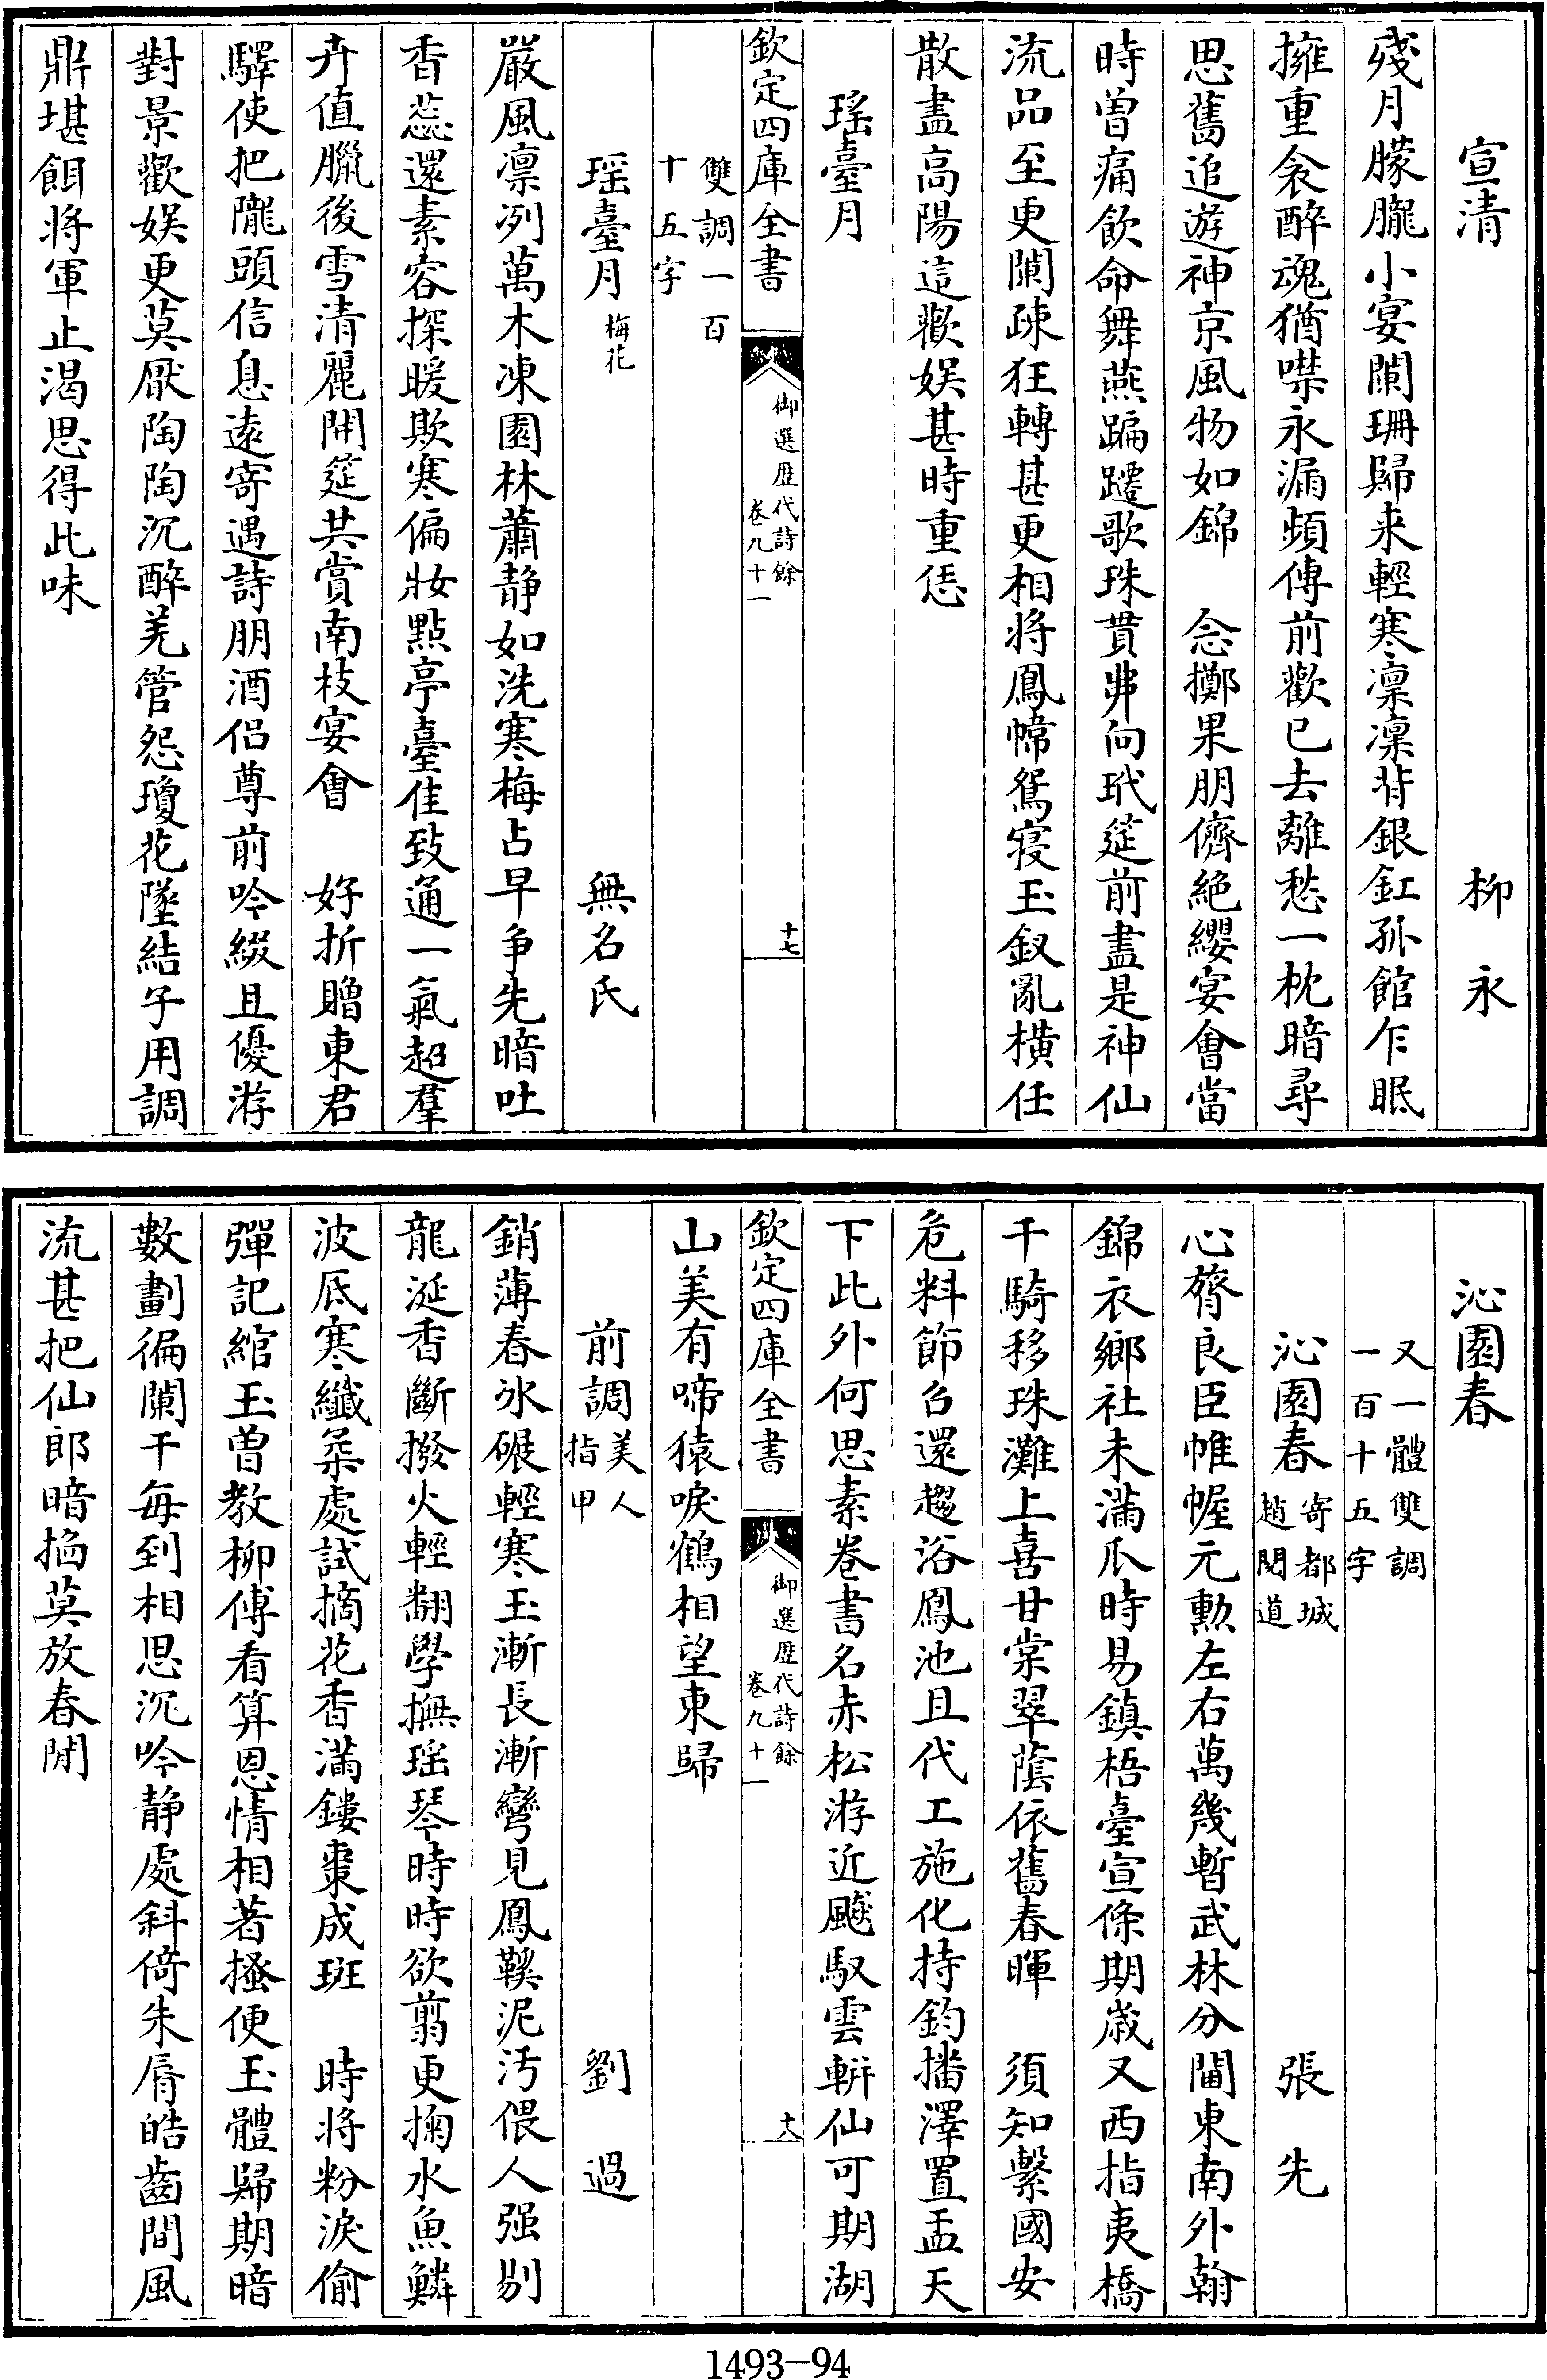 宣清　柳永
殘月朦朧小宴闌珊歸来輕寒凜凜背銀釭孤館乍眠
擁重衾醉魂猶噤永漏頻傳前歡已去離愁一枕暗尋
思舊追遊神京風物如錦　念擲果朋儕絶纓宴會當
時曾痛飲命舞燕蹁躚歌珠貫串向玳筵前盡是神仙
流品至更闌疎狂轉甚更相將鳳幃鴛寢玉釵亂横任
散盡高陽這歡娯甚時重恁
瑤臺月
欽定四庫全書
御選歴代詩餘
卷九十一
十七
雙調一百
十五字
瑶臺月梅花　無名氏
嚴風凛冽萬木凍園林蕭静如洗寒梅占早争先暗吐
香蕊還素容探暖欺寒偏妝點亭臺佳致通一氣超羣
卉值臘後雪清麗開筵共賞南枝宴會　好折贈東君
驛使把隴頭信息遠寄遇詩朋酒侣尊前吟綴且優游
對景歡娯更莫厭陶陶沉醉羌管怨瓊花墜結子用調
鼎堪餌將軍止渴思得此味
沁園春
又一體雙調
一百十五字
沁園春寄都城趙閱道　張先
心膂良臣帷幄元勲左右萬幾暫武林分閫東南外翰
錦衣鄉社未滿瓜時易鎮梧臺宣條期歲又西指夷橋
千騎移珠灘上喜甘棠翠蔭依舊春暉　須知繫國安
危料節召還趨浴鳳池且代工施化持鈞播澤置盂天
下此外何思素卷書名赤松游近飈馭雲軿仙可期湖
欽定四庫全書
御選歴代詩餘
卷九十一
十八
山美有啼猿唳鶴相望東歸
前調美人指甲　劉過
銷薄春冰碾輕寒玉漸長漸彎見鳳鞵泥汚偎人强剔
龍涎香斷撥火輕翻學撫瑶琴時時欲翦更掬水魚鱗
波底寒纖柔處試摘花香滿鏤棗成斑　時將粉淚偷
彈記綰玉曾教柳傅看算恩情相著搔便玉體歸期暗
數劃徧闌干每到相思沉吟静處斜倚朱脣皓齒間風
流甚把仙郎暗掐莫放春閒
1493—94